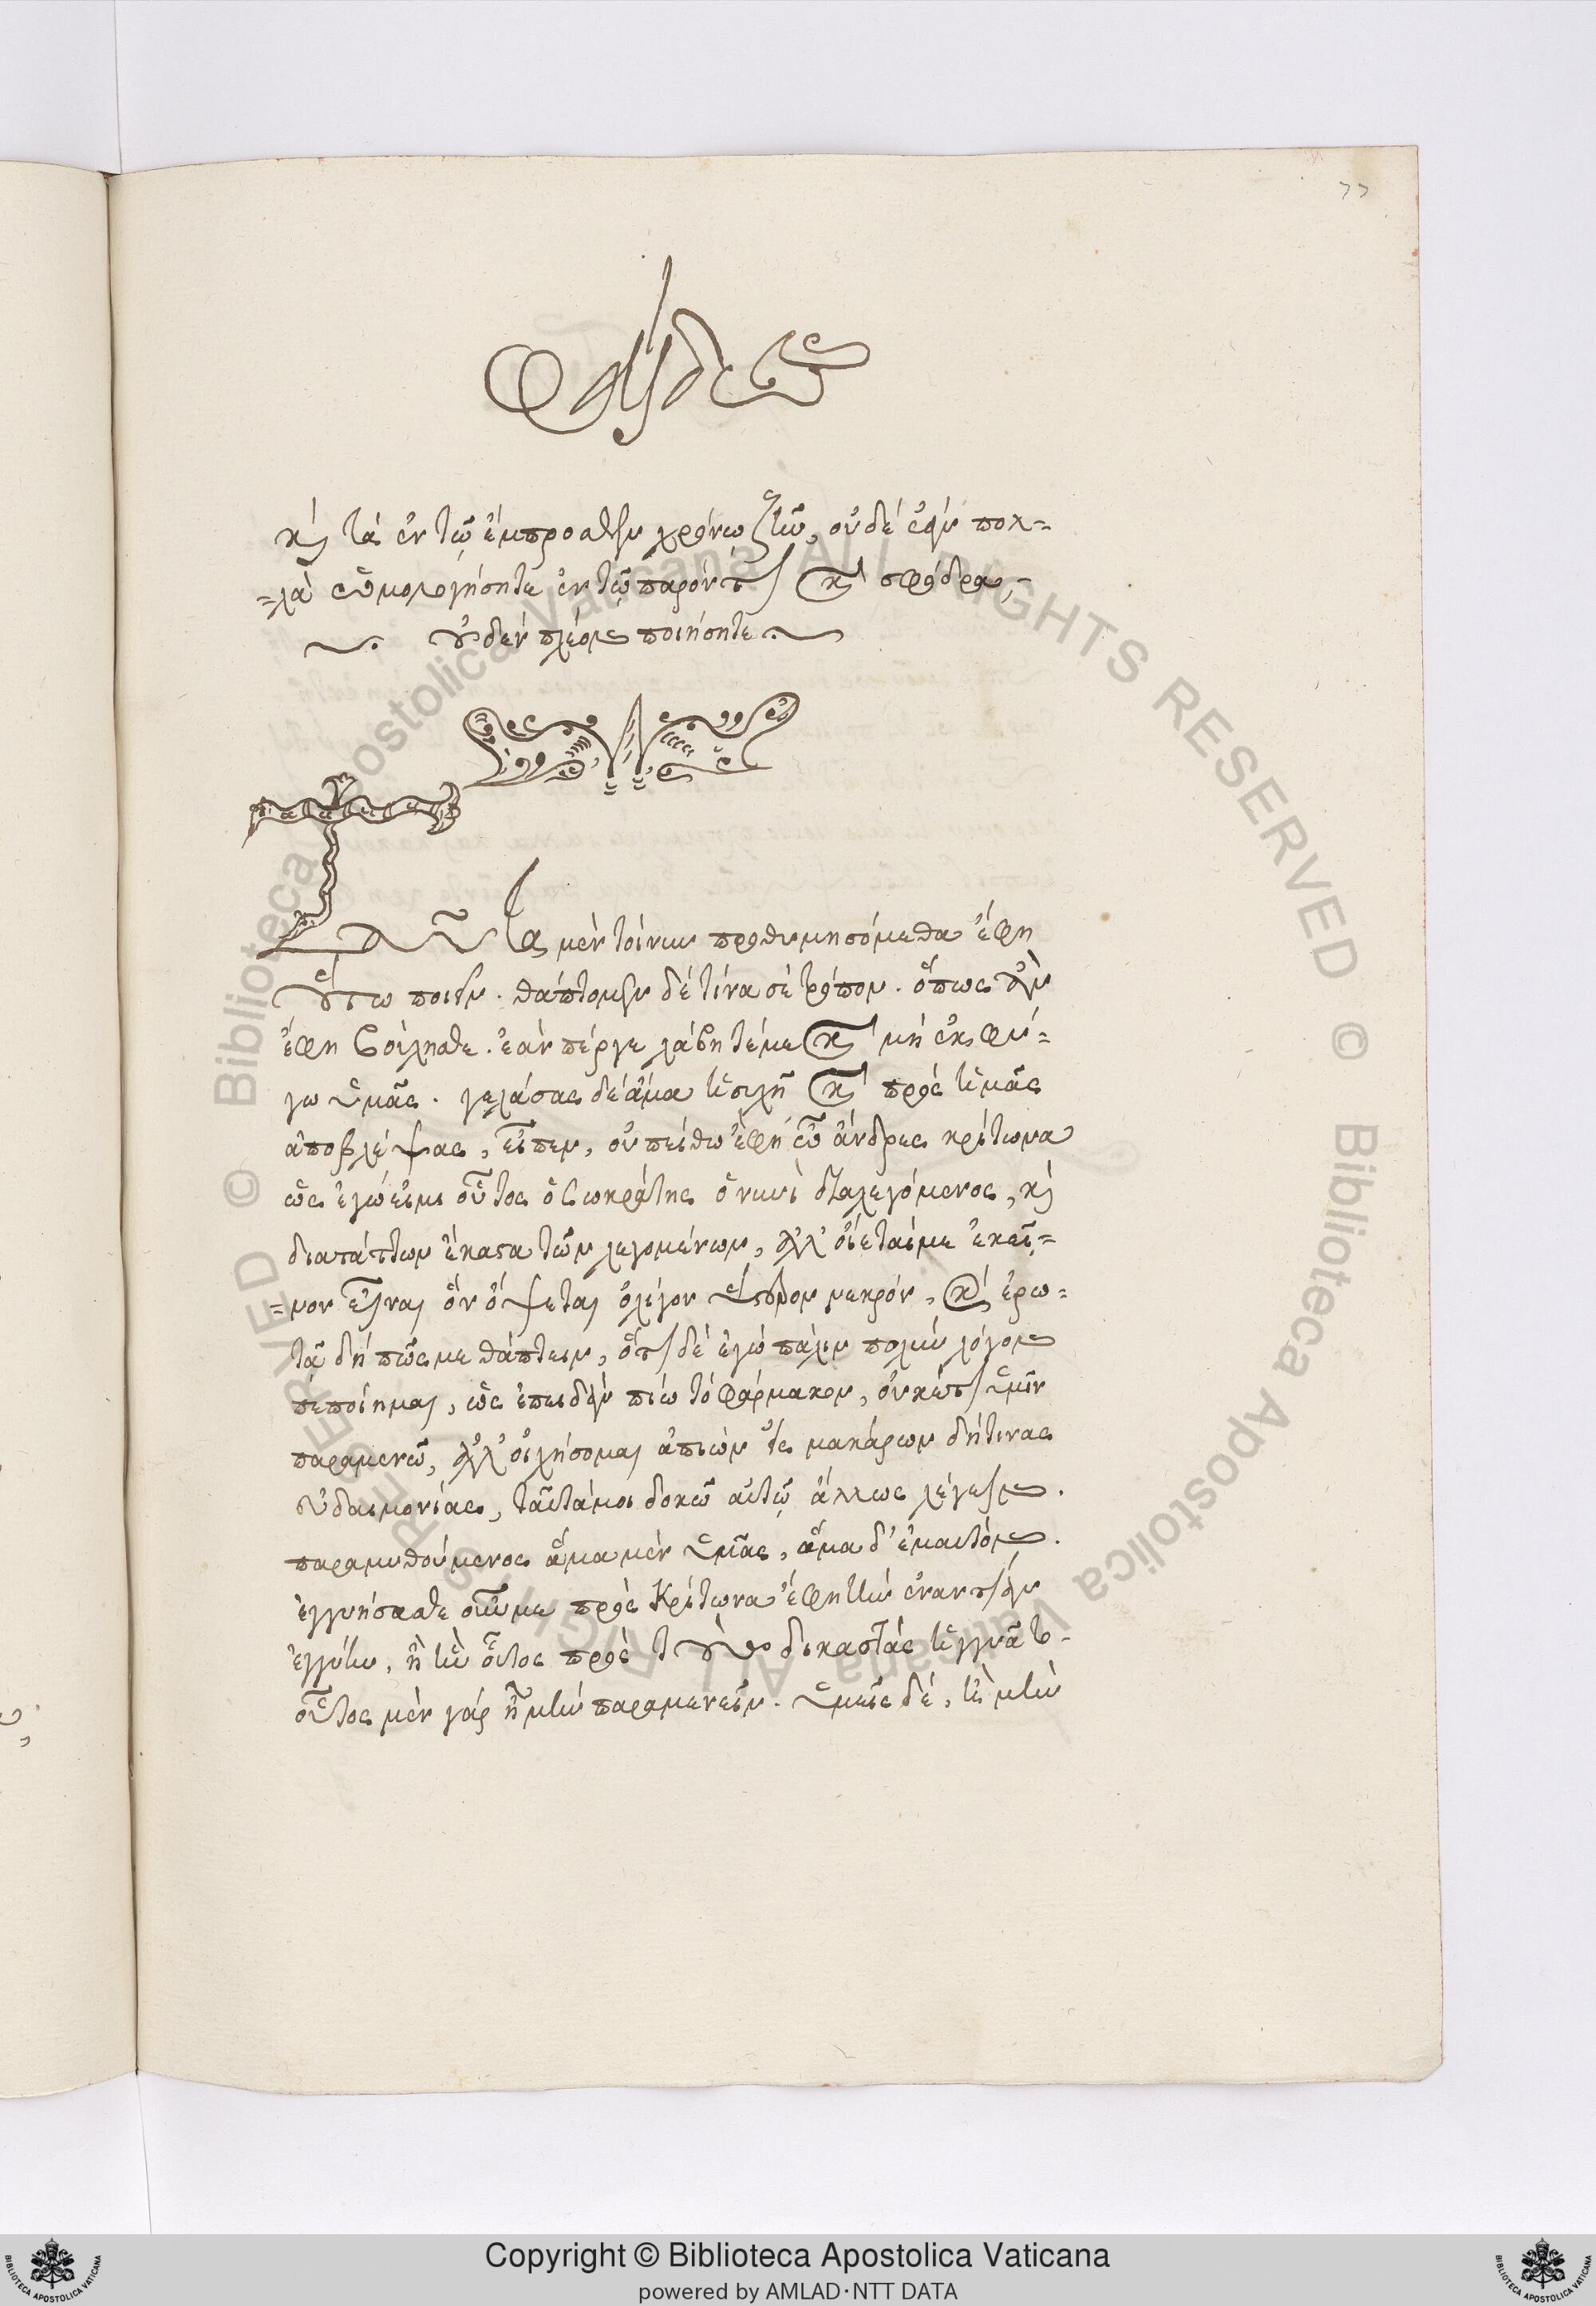 77
καὶ τὰ ἐν τῷ ἔμπροσθεν χρόνω ζῆν, οὐδὲ ἐὰν πολ=
=λὰ ὁμολογήσητε ἐν τῷ παρόντι καὶ σφόδρα,
οὐδὲν πλέον ποιήσητε.
Ταῦτα μὲν τοίνυν προθυμησόμεθα ἔφη
οὕτω ποιεῖν. θάπτομεν δὲ τίνα σὲ τρόπον. ὅπως ἂν
ἔφη βούλησθε. ἐάν πέρ γε λάβητέ με καὶ μὴ ἐκφύ=
γω ὑμᾶς. γελάσας δὲ ἅμα ἡσυχῆ καὶ πρὸς ἡμᾶς
ἀποβλέψας, εἶπεν, οὐ πείθω ἔφη ὦ ἄνδρες κρίτωνα
ὡς ἐγώ εἰμι οὗτος ὁ Σωκράτης ὁ νυνὶ διαλεγόμενος, καὶ
διατάττων ἕκαστα τῶν λεγομένων, ἀλλ' οἴεταί με ἐκεῖ=
=νον εἶναι ὃν ὄψεται ὀλίγον ὕστερον νεκρόν, καὶ ἐρω=
τᾶ δὴ πῶς με θάπτειν, ὅτι δὲ ἐγὼ πάλιν πολὺν λόγον
πεποίημαι, ὡς ἐπειδὰν πίω τὸ φάρμακον, οὐκέτι ὑμῖν
παραμενῶ, ἀλλ' οἰχήσομαι ἀπιὼν εἰς μακάρων δή τινας
εὐδαιμονίας, ταῦτά μοι δοκῶ αὐτῷ ἄλλως λέγειν.
παραμυθούμενος ἅμα μὲν ὑμᾶς, ἅμα δ' ἐμαυτόν.
ἐγγυήσασθε οὖν με πρὸς Κρίτωνα ἔφη τὴν ἐναντίαν
ἐγγύην, ἢ ἣν οὗτος πρὸς τοὺς δικαστὰς ἠγγυᾶτο
οὗτος μὲν γὰρ ἦ μὴν παραμενεῖν. ὑμεῖς δὲ, ἦ μὴν
Copyright © Biblioteca Apostolica Vaticana
powered by AMLAD·NTT DATA